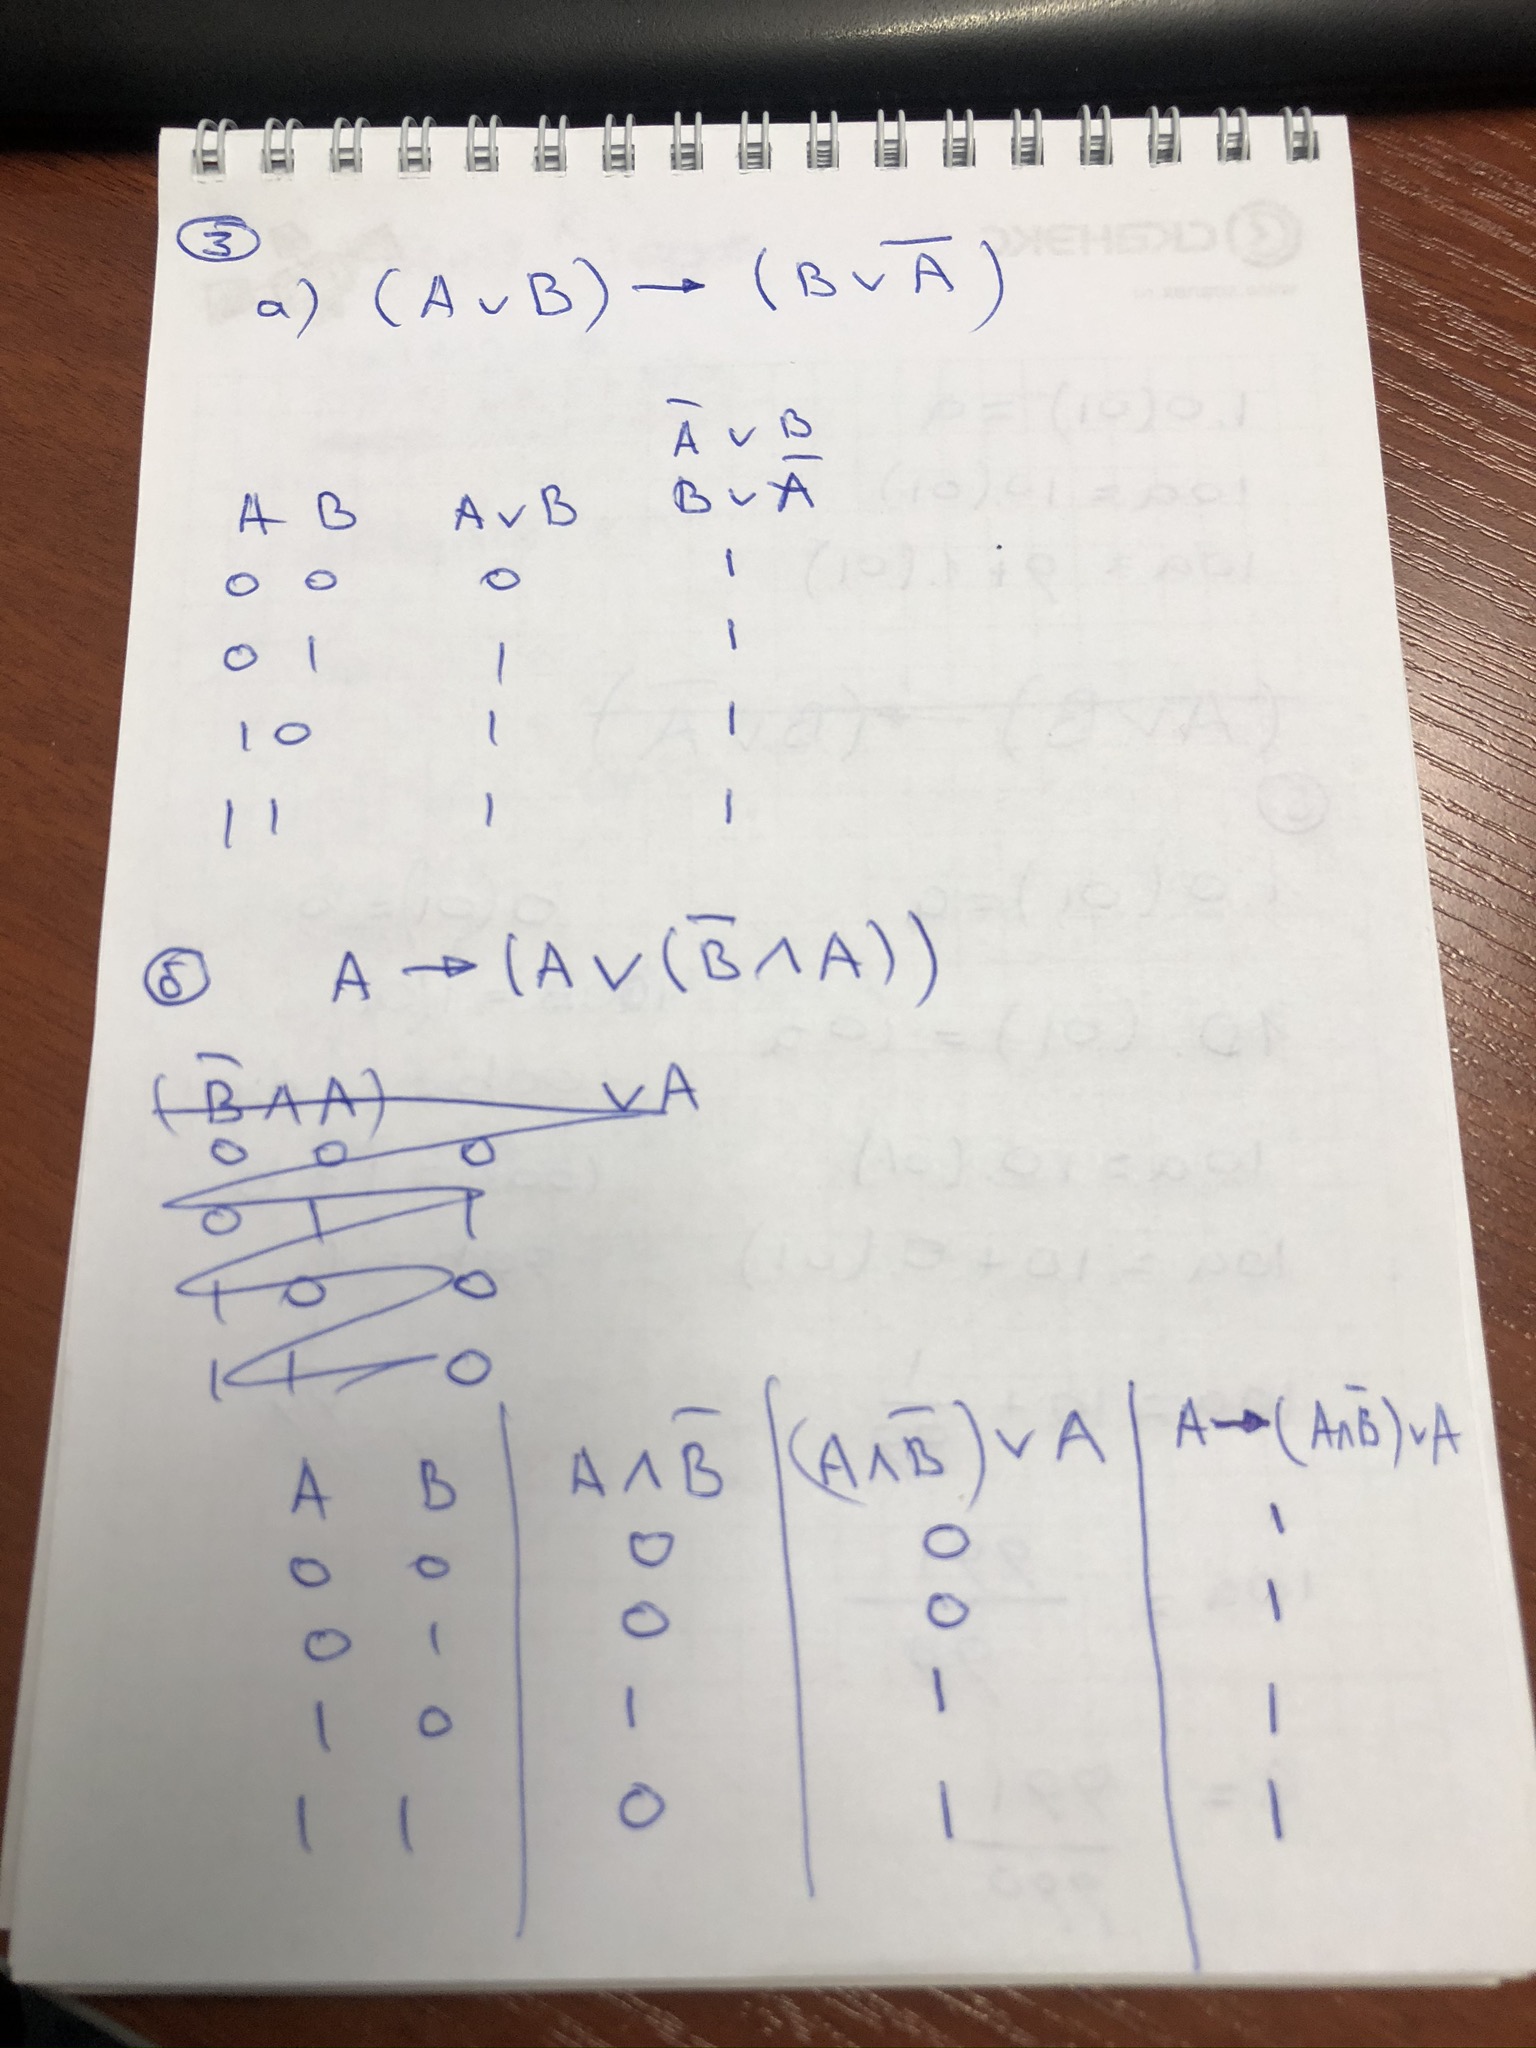 3
а) (A ∨ B) → (B ∨ A̅)
A̅ ∨ B
A B A ∨ B B ∨ A̅
0 0 0 1
0 1 1 1
1 0 1 1
1 1 1 1
б A → (A ∨ (B̅ ∧ A))
(B̅ ∧ A) ∨ A
0 0 0
0 1 1
1 0 0
1 1 0
A B A ∧ B̅ (A ∧ B̅) ∨ A A → (A ∧ B̅) ∨ A
0 0 0 0 1
0 1 0 0 1
1 0 1 1 1
1 1 0 1 1